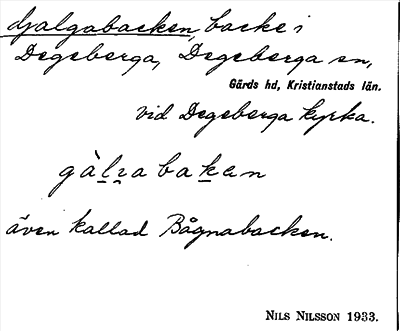 djalgabacken, backe i
Degeberga, Degeberga sn,
Gärds hd, Kristianstads län.
vid Degeberga kyrka.
även kallad Bågnabacken.
NILS NILSSON 1933.